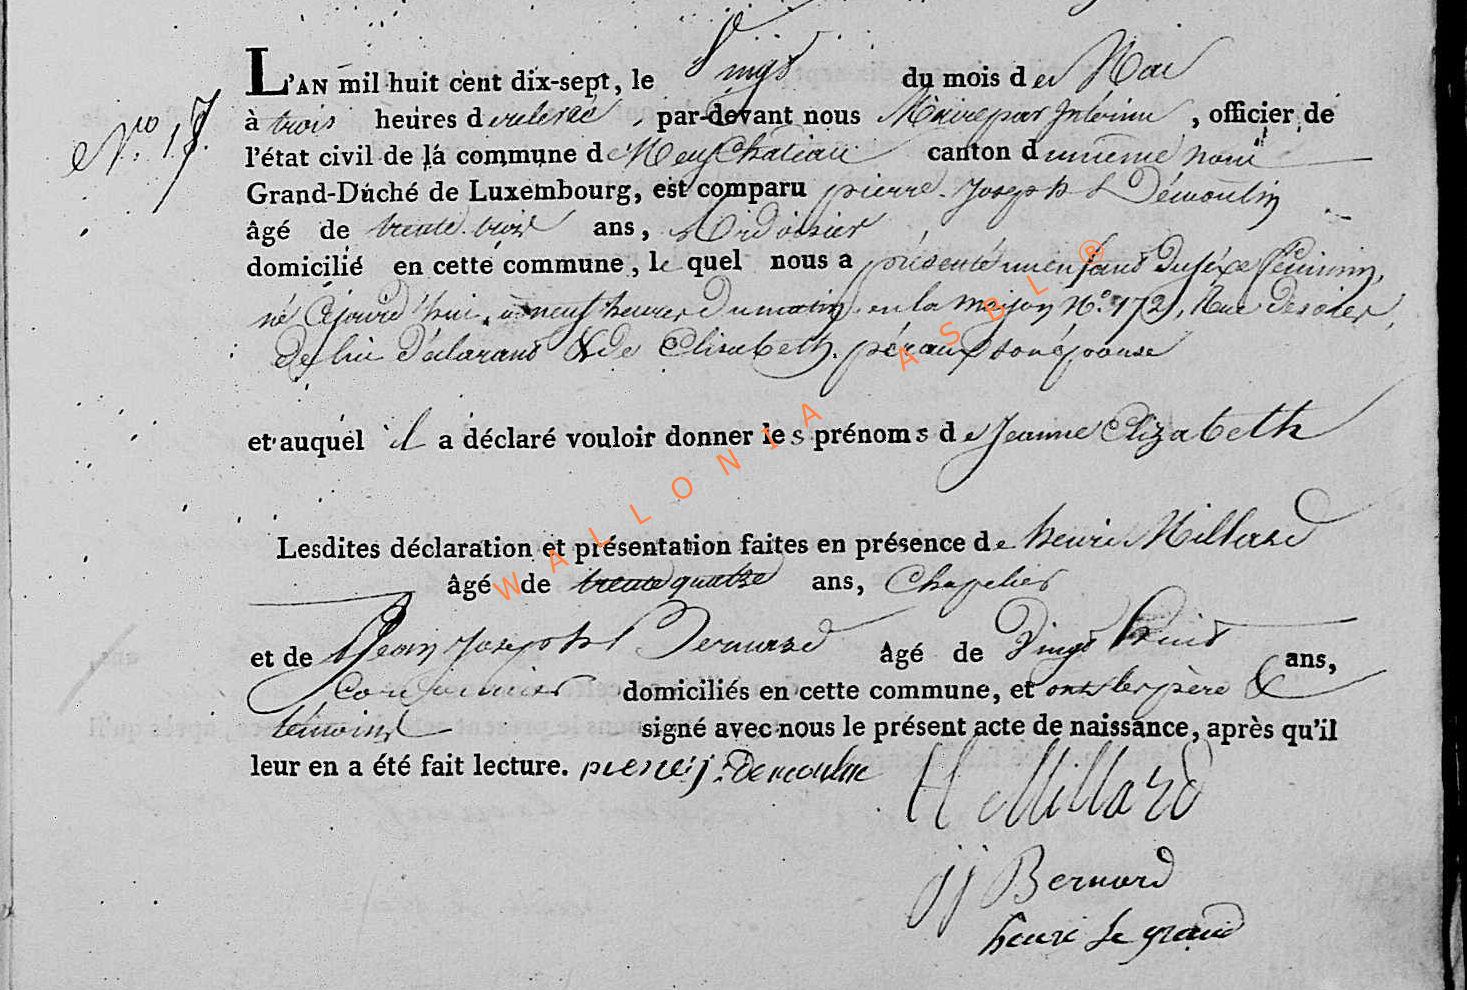 N.ro 17.
L'AN mil huit cent dix-sept, le Vingt du mois de Mai
à trois heures de relevée, par-devant nous Maire par Intérim, officier de
l'état civil de la commune de Neufchateau canton du même nom
Grand-Duché de Luxembourg, est comparu pierre Joseph Démoulin
âgé de trente trois ans, Ardoisier
domicilié en cette commune, le quel nous a présenté un enfant du séxe féminin,
né cejourd'hui, à neuf heures du matin en la maison N.o 172, Rue
de lui déclarant & de Elisabeth péraux son épouse
et auquel il a déclaré vouloir donner les prénoms de Jeanne Elizabeth
Lesdites déclaration et présentation faites en présence de henri Millard
âgé de trente quatre ans, Chapelier
et de Jean Joseph Bernard âgé de Vingt huit ans,
Cordonnier domiciliés en cette commune, et ont les père &
témoins signé avec nous le présent acte de naissance, après qu'il
leur en a été fait lecture. pierre j. Demoulin
H Millard
jj Bernard
henri Le grand
WALLONIA ASBL ®